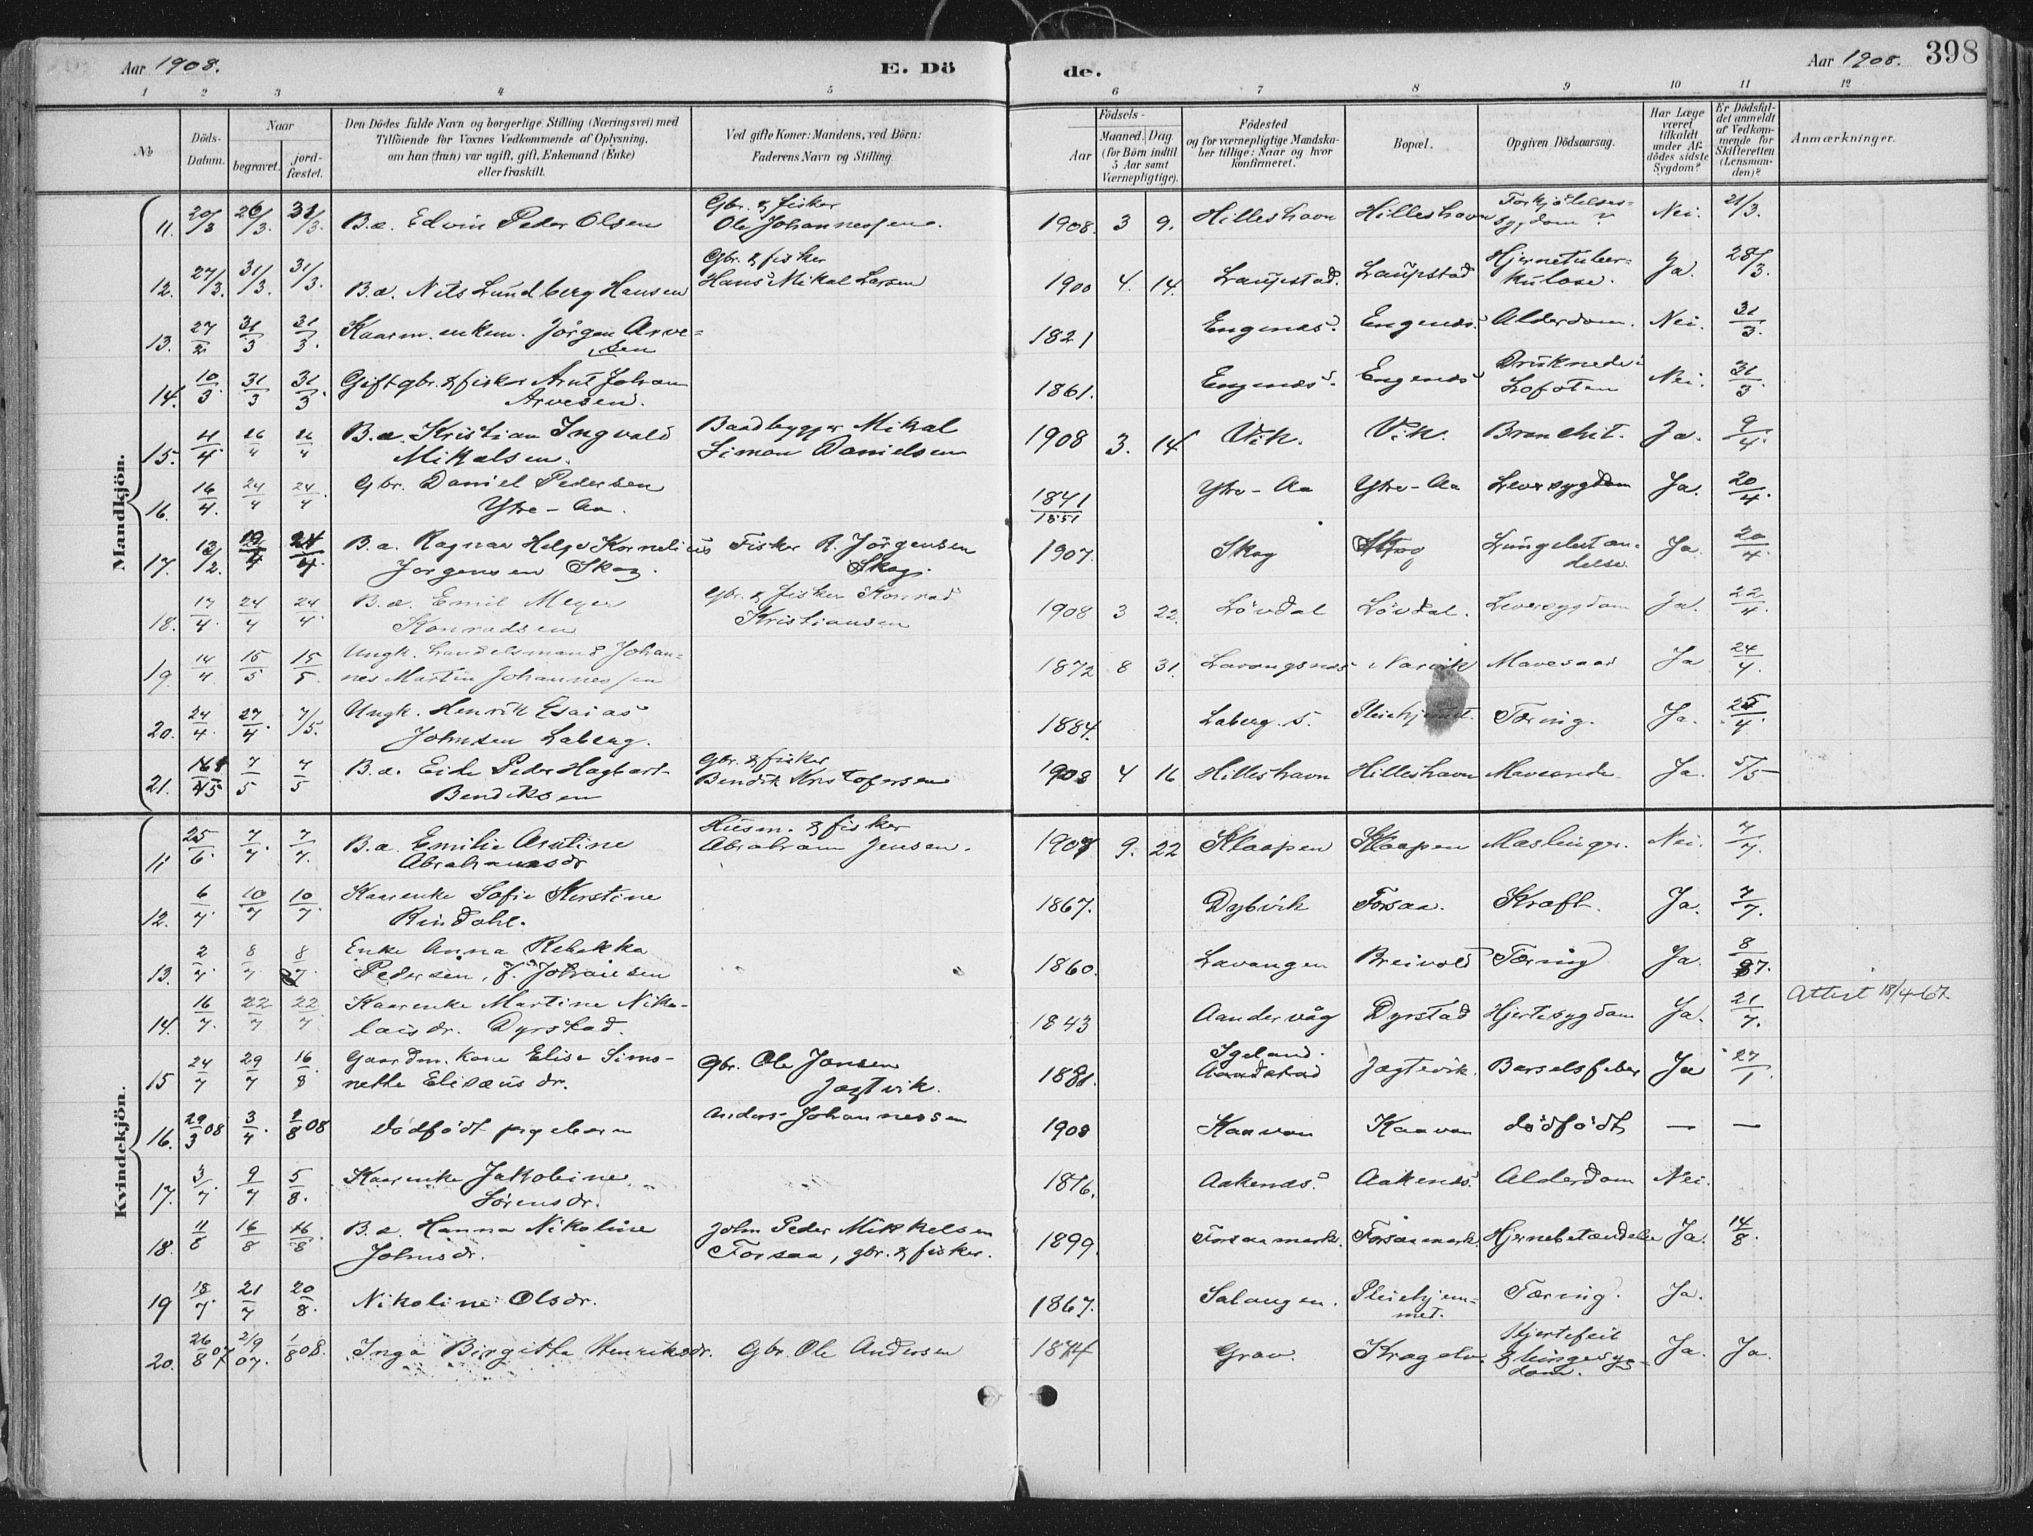 Aar 1908. E. Dö de. Aar 1908. 398
1 2 3 4 5 6 7 8 9 10 11 12
No
Döds-Datum.
Naar
begravet. jordfæstet.
Den Dödes fulde Navn og borgerlige Stilling (Næringsvei) med
Tilföiende for Voxnes Vedkommende af Oplysning,
om han (hun) var ugift, gift, Enkemand (Enke)
eller fraskilt.
Ved gifte Koner: Mandens, ved Börn:
Faderens Navn og Stilling.
Födsels-
Aar
Maaned. Dag.
(for Börn indtil
5 Aar samt
Værnepligtige).
Födested
og for værnepligtige Mandska-
ber tillige: Naar og hvor
konfirmeret.
Bopæl.
Opgiven Dödsaarsag.
Har Læge
været
tilkaldt
under Af-
dödes sidste
Sygdom?
Er Dödsfal-
det anmeldt
af Vedkom-
mende for
Skifteretten
(Lensman-
den)?
Anmærkninger.
Mandkjön.
11. 20/3 26/3. 31/3. B.a. Edvin Peder Olsen Gbr. & fisker Ole Johannessen. 1908. 3 9. Hilleshavn Hilleshavn Forkjölelses-sygdom? Nei. 21/3.
12. 27/3. 31/3. 31/3. B.a. Nils Lundberg Hansen Gbr. & fisker Hans Mikal Larsen 1900 4. 14. Laupstad. Laupstad Hjernetuber-kulose. Ja. 28/3.
13. 27/2 31/3 31/3. Kaarm. enkem. Jörgen Arve-sen 1821 Engenæs. Engenæs. Alderdom. Nei. 31/3.
14. 10/3. 31/3 31/3. Gift gbr. & fisker Arnt Johan Arvesen. 1861. Engenæs. Engenæs Druknede i Lofoten Nei. 31/3
15. 4/4. 26/4 26/4 B.a. Kristian Ingvald Mikalsen. Baadbygger Mikal Simon Danielsen 1908 3. 14 Vik. Vik. Bronchit. Ja. 9/4.
16. 16/4. 24/4 24/4 Gbr. Daniel Pedersen Ytre-Aa. 1841 1851 Ytre-Aa Ytre-Aa Leversygdom Ja. 20/4.
17. 13/2. 24/4 B.a. Ragnar Helge Kornelius Jörgensen Skog. Fisker R. Jörgensen Skog. 1907. Skog Skog Lungebetæn-delse. Ja. 20/4.
18. 17/4. 24/4 24/4. B.a. Emil Meyer Konradsen Gbr. & fisker Konrad Kristiansen 1908 3 22. Lövdal Lövdal. Leversygdom Ja. 22/4.
19. 14/4 15/5 15/5. Ungk. handelsmand Johan-nes Martin Johannessen 1872 8 31. Lavangsnæs Narvik Mavesaar Ja 24/4.
20. 24/4. 27/4. 7/5. Ungk. Henrik Esaias Johnsen Laberg. 1884. Laberg. S. Pleiehjemmet. Tæring. Ja. 25/4.
21. 7/5 7/5 B.a. Eide Peder Hagbart Bendiksen Gbr. & fisker Bendik Kristofersen 1908 4 16 Hilleshavn Hilleshavn Maveonde Ja. 5/5
Kvindekjön.
11 25/6. 7/7. 7/7. B.a. Emilie Arntine Abrahamsdr Husm. & fisker Abraham Jensen. 1907 9. 22 Klaapen Klaapen Mæslinger. Nei. 7/7
12. 6/7. 10/7 10/7. Kaarenke Sofie Kirstine Rindahl. 1867. Dybvik Forsaa. Kræft. Ja. 7/7.
13. 2/7. 8/7 8/7. Enke Anna Rebekka Pedersen, f. Johansen 1860. Lavangen Breivold Tæring Ja. 8/7.
14. 16/7. 22/7 22/7 Kaarenke Martine Niko-laisdr. Dyrstad. 1843 Aandervåg Dyrstad Hjertesygdom Ja. 21/7. Attest 18/4-67.
15 24/7 29/7 16/8 Gaardm. kone Elise Simo-nette Elisæusdr. Gbr. Ole Jensen Jagtvik. 1881. Igeland. Aandstad Jagtevik. Barselsfeber Ja 27/1.
16. 29/3 08 3/4. 2/8 08 Dödfödt pigebarn Anders Johannessen 1908 Kaavan Kaavan dödfödt — —
17. 3/7. 9/7 5/8. Kaarenke Jakobine Sörensdr. 1816. Aakenæs. Aakenæs. Alderdom Nei.
18. 11/8 16/8 16/8. B.a. Hanna Nikoline Johnsdr. John Peder Mikkelsen Forsaa, gbr. & fisker. 1899. Forsaamark. Forsaamark. Hjernebetændelse Ja. 14/8.
19 18/7. 21/7 20/8. Nikoline Olsdr. 1867. Salangen. Pleiehjem-met. Tæring. Ja.
20. 26/8 07 2/9 07. 1/8 08. Inga Birgitta Henriksdr. Gbr. Ole Andersen 1874 Grav. Kragelv. Hjertefeil & lungesyg-dom. Ja. Ja.